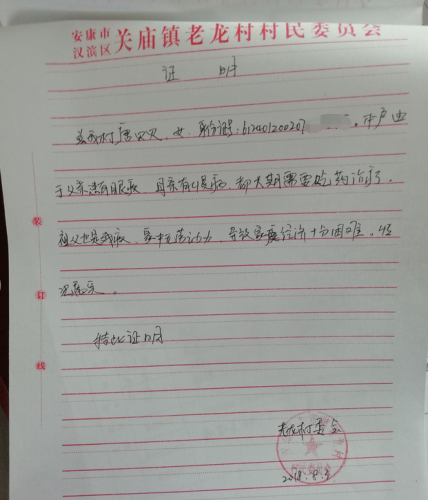 安康市
汉滨区 关庙镇老龙村村民委员会
证 明
兹我村唐 女,身份证:612401200207 。本户由
于父亲患有眼疾,母亲有慢病,都长期需要吃药治疗,
祖父也是残疾,家中无劳动力,导致家庭经济十分困难。情
况属实。
特此证明
装
订
线
老龙村委会
2018.8.3